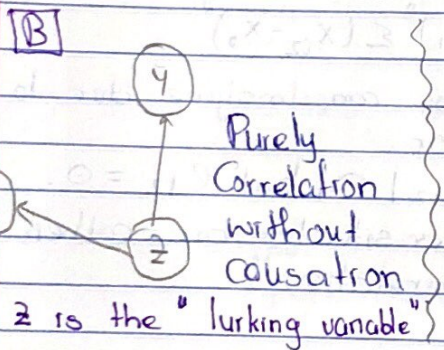 B
Y
Purely
Correlation
without
Z
causation
Z is the "lurking variable"